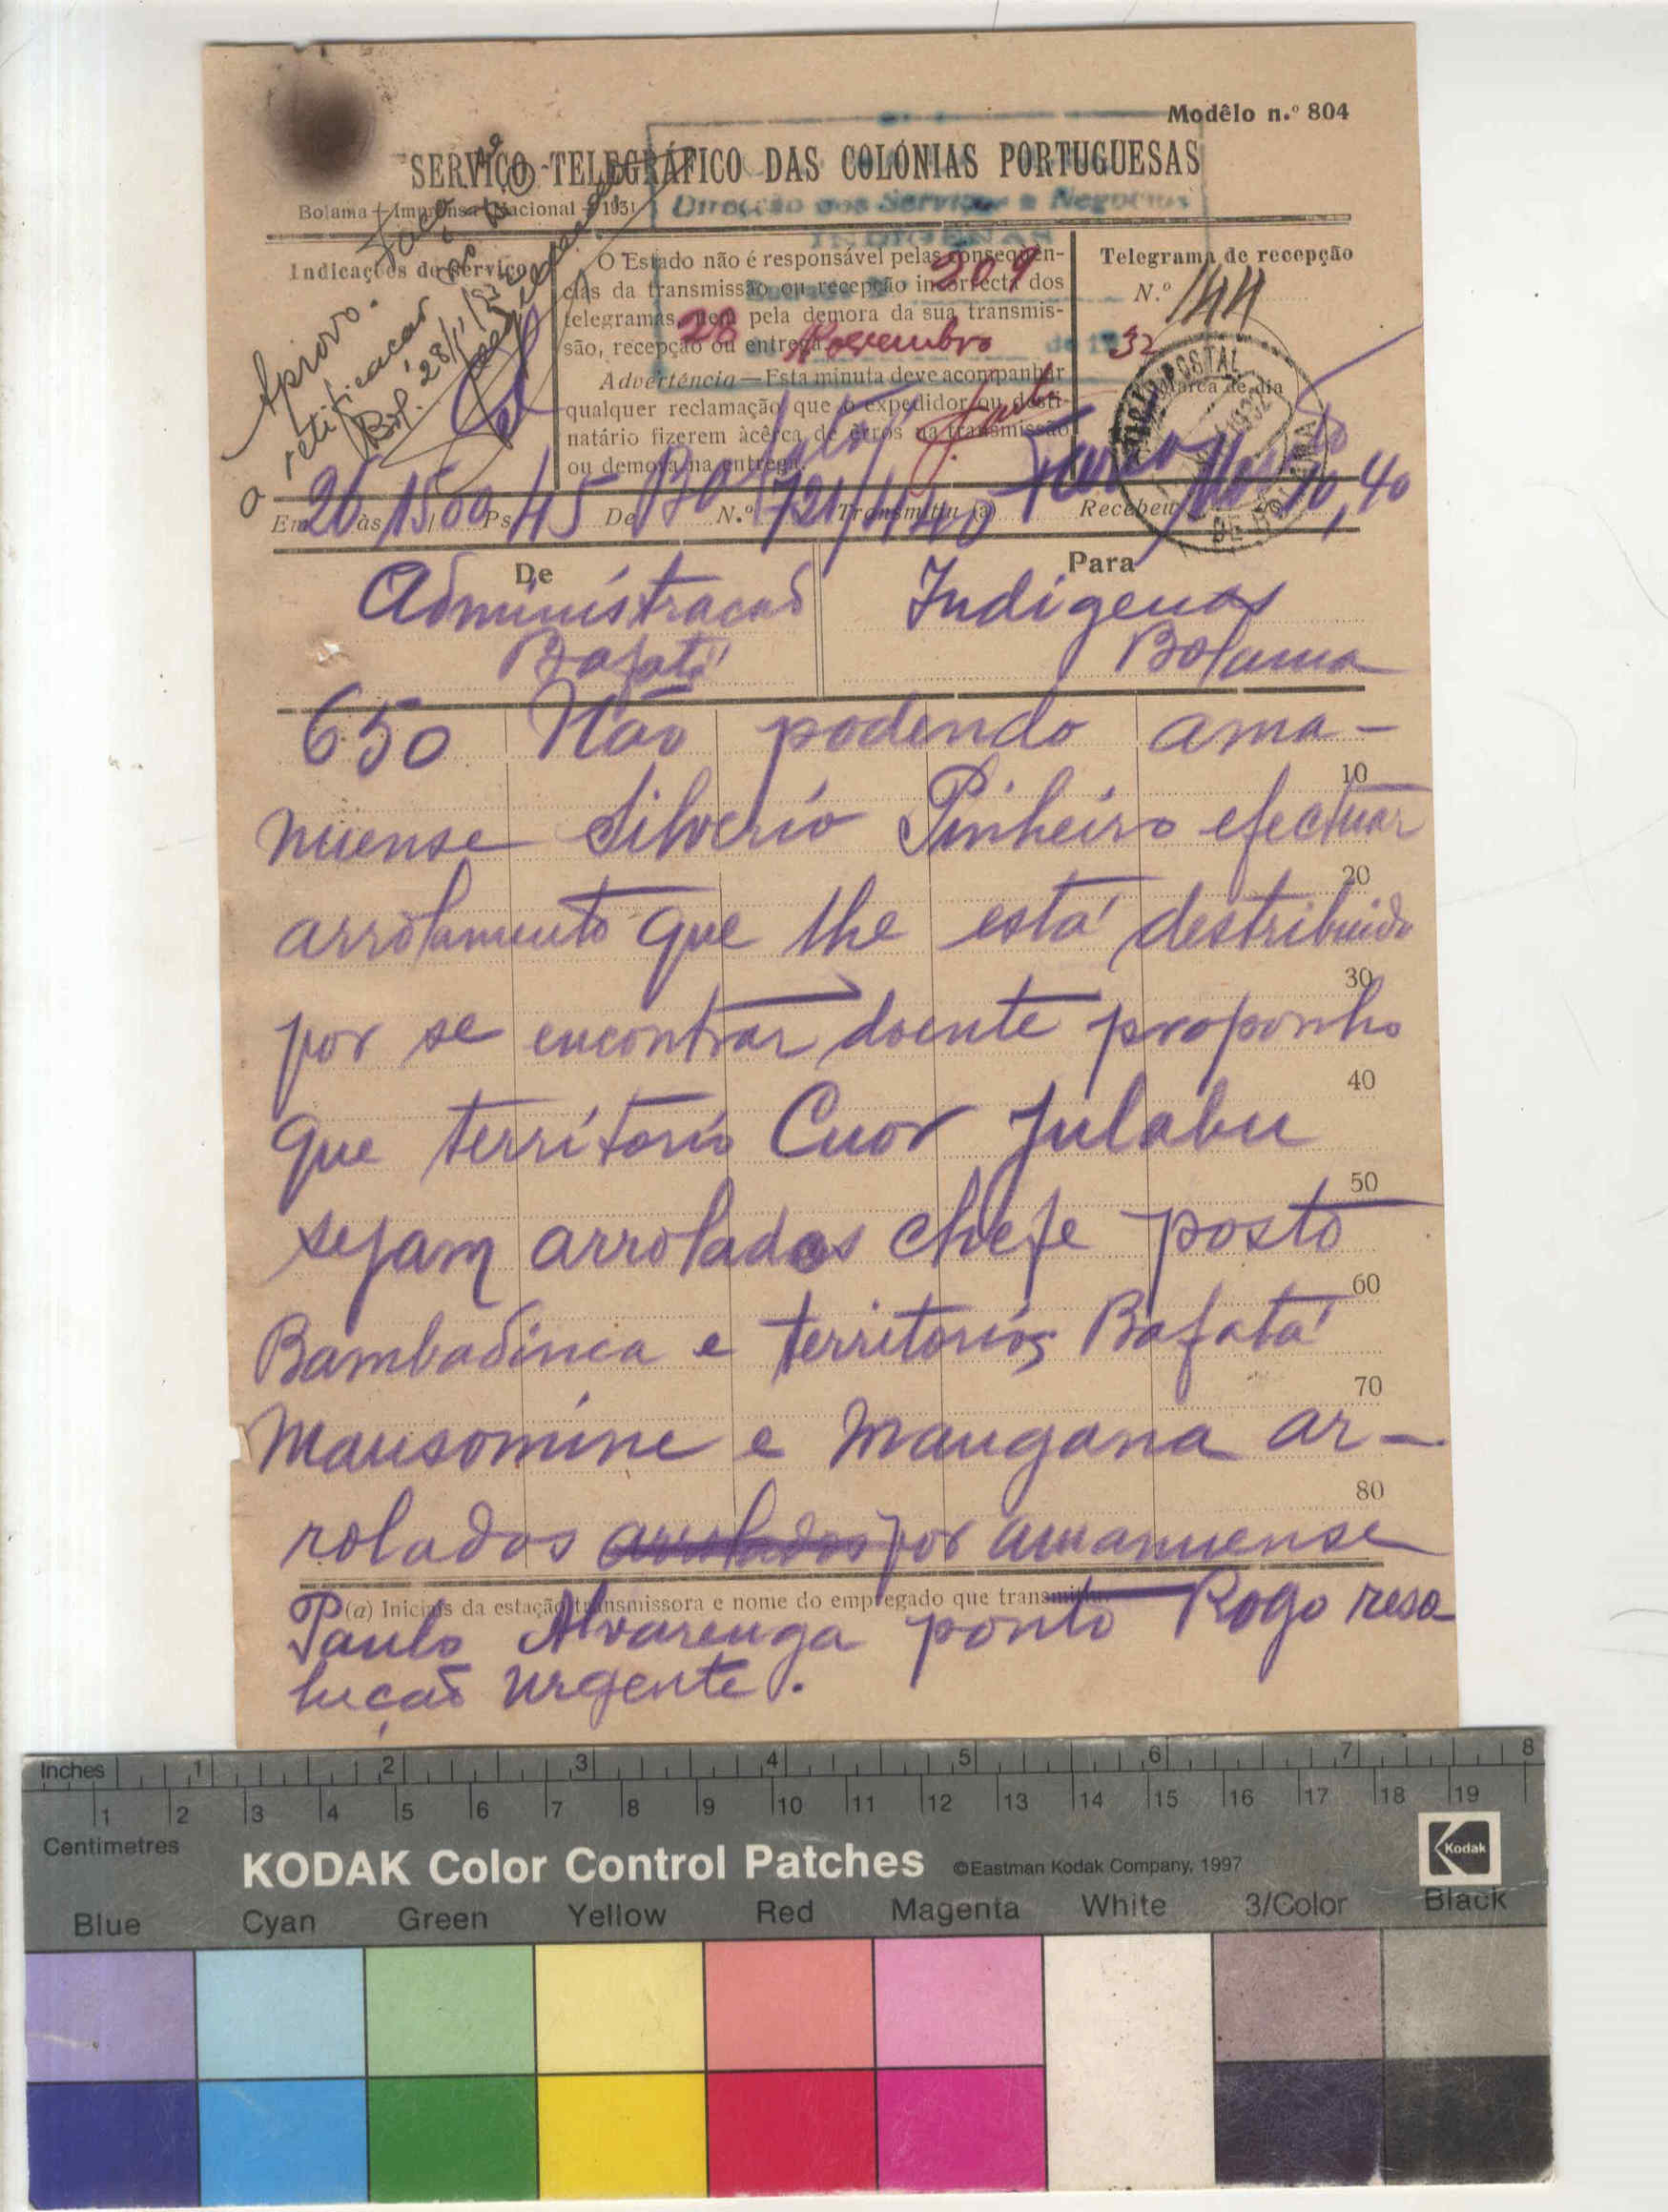 Modêlo n.º 804
SERVIÇO TELEGRÁFICO DAS COLÓNIAS PORTUGUESAS
Bolama — Imprensa Nacional — 1931
Direcção dos Serviços e Negocios
INDIGENAS
Indicações de serviço
Aprovo.
a retificação
Bol. 28/11/32
O Estado não é responsável pelas conseqüên-
cias da transmissão ou recepção incorrecta dos
telegramas, nem pela demora da sua transmis-
são, recepção ou entrega.
Advertência — Esta minuta deve acompanhar
qualquer reclamação que o expedidor ou desti-
natário fizerem àcêrca de êrros na transmissão
ou demora na entrega.
209
28 Novembro de 1932
Telegrama de recepção
N.º 144
Marca de dia
POSTAL
1932
Em 26 às 1500 Ps. 45 De Bafatá N.º 721/1140 Transmitiu (a) Recebeu 10,40
De
Administração
Bafatá
Para
Indigenas
Bolama
650 Não podendo ama-
10
nuense Silverio Pinheiro efectuar
20
arrolamento que lhe está destribuido
30
por se encontrar doente proponho
40
que territorio Cuor Julabu
50
sejam arrolados chefe posto
60
Bambadinca e territorios Bafatá
70
Mansomine e Mangana ar-
80
rolados arrolados por amanuense
(a) Iniciais da estação transmissora e nome do empregado que transmitiu.
Paulo Alvarenga ponto Rogo reso
lução urgente.
Inches 1 2 3 4 5 6 7 8
1 2 3 4 5 6 7 8 9 10 11 12 13 14 15 16 17 18 19
Centimetres
KODAK Color Control Patches ©Eastman Kodak Company, 1997 Kodak
Blue Cyan Green Yellow Red Magenta White 3/Color Black